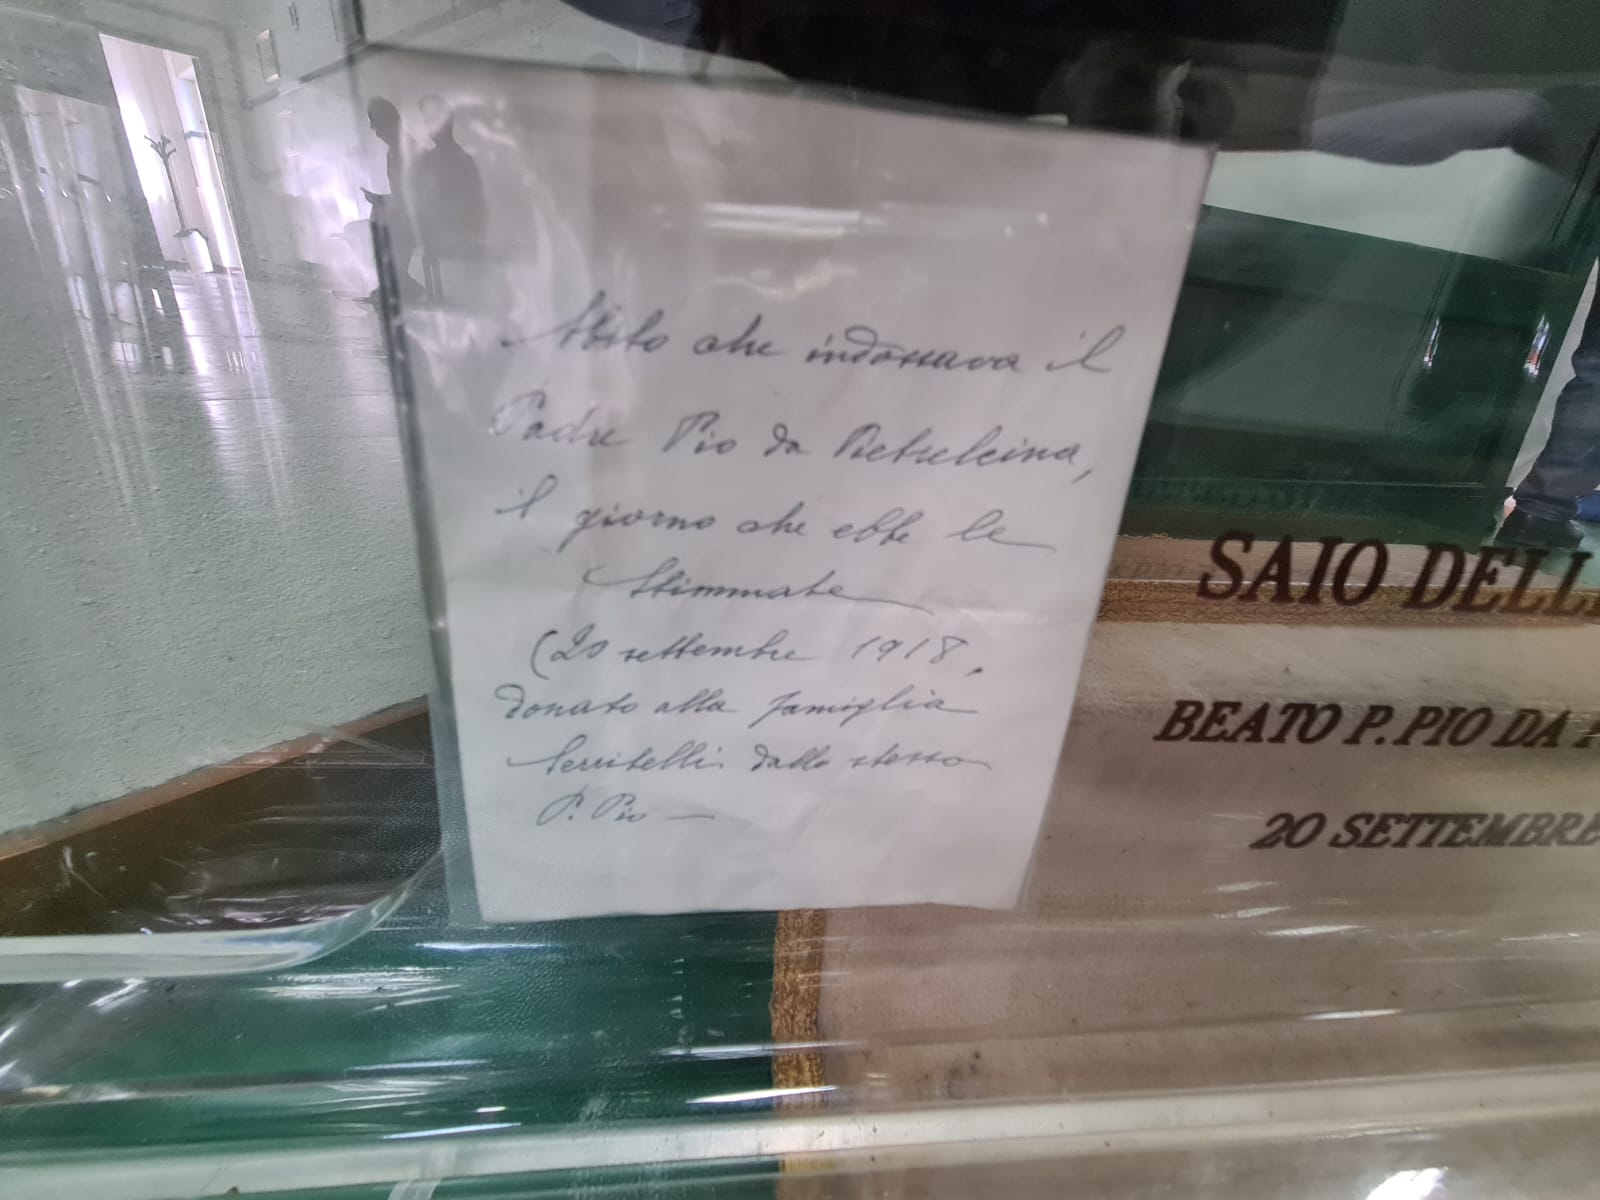 Abito che indossava il
Padre Pio da Pietrelcina,
il giorno che ebbe le
Stimmate
(20 settembre 1918,
donato alla famiglia
Serritelli dallo stesso
P. Pio —
SAIO DELL
BEATO P. PIO DA
20 SETTEMBRE